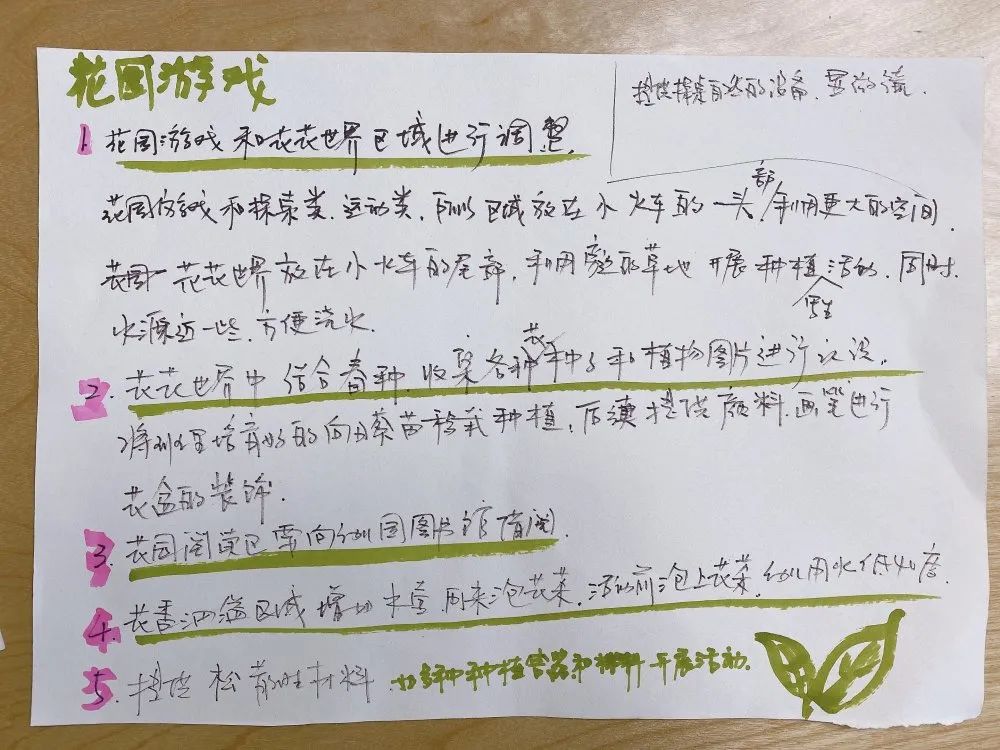 花园游戏
提供探索自然的设备,
1 花园游戏和花花世界区域进行调整.
花园游戏和探索类、运动类,所以区域放在小火车的一头部,利用更大的空间.
花花世界放在小火车的尾部,利用宽的草地开展种植活动,同时
水源近一些,方便浇水.
2. 花花世界中结合春种,收集各种花种子和植物图片进行认识,
将班里培育好的向日葵苗移栽种植,后续提供颜料、画笔进行
花盆的装饰.
3. 花园阅览区需向幼儿园图书馆借阅.
4. 花香四溢区域增加水壶用来泡花茶,活动前泡上花茶,幼儿用水低40度.
5 提供松散性材料 如多种种植容器和材料开展活动.